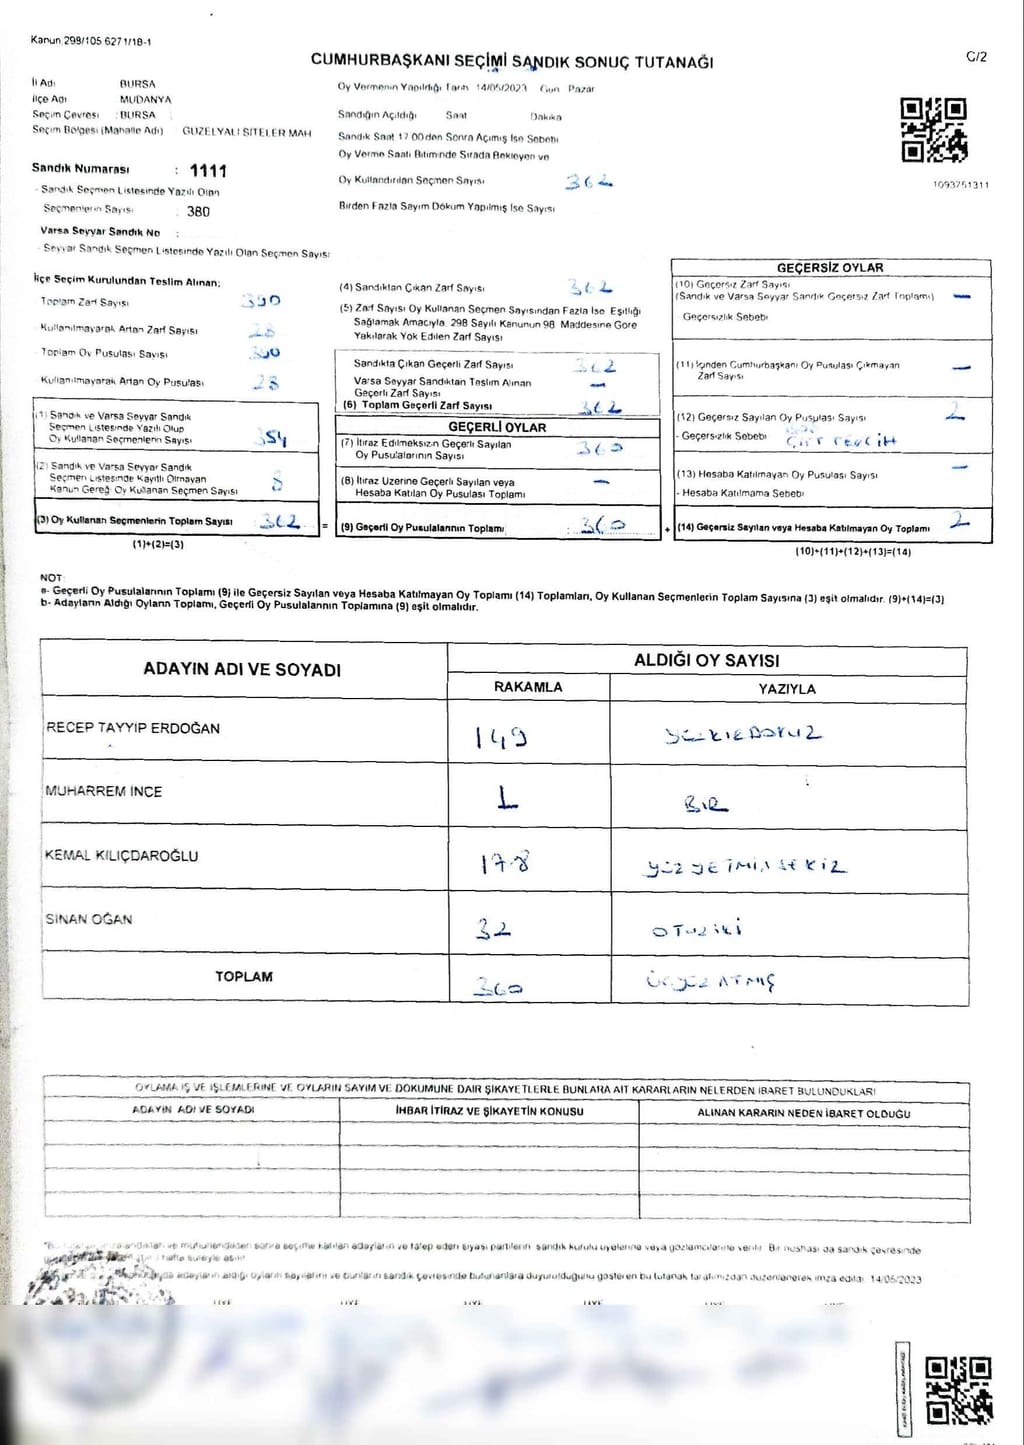 Kanun 298/105 6271/18-1
CUMHURBAŞKANI SEÇİMİ SANDIK SONUÇ TUTANAĞI
C/2
İl Adı BURSA
İlçe Adı MUDANYA
Seçim Çevresi : BURSA
Seçim Bölgesi (Mahalle Adı) GÜZELYALI SİTELER MAH
Oy Vermenin Yapıldığı Tarih 14/05/2023 Gün Pazar
Sandığın Açıldığı Saat Dakika
Sandık Saat 17.00'den Sonra Açılmış İse Sebebi
Oy Verme Saati Bitiminde Sırada Bekleyen ve
Oy Kullandırılan Seçmen Sayısı 362
Birden Fazla Sayım Döküm Yapılmış İse Sayısı
1093751311
Sandık Numarası : 1111
- Sandık Seçmen Listesinde Yazılı Olan
Seçmenlerin Sayısı : 380
Varsa Seyyar Sandık No :
- Seyyar Sandık Seçmen Listesinde Yazılı Olan Seçmen Sayısı
İlçe Seçim Kurulundan Teslim Alınan;
Toplam Zarf Sayısı 390
Kullanılmayarak Artan Zarf Sayısı 28
Toplam Oy Pusulası Sayısı 390
Kullanılmayarak Artan Oy Pusulası 28
(1) Sandık ve Varsa Seyyar Sandık
Seçmen Listesinde Yazılı Olup
Oy Kullanan Seçmenlerin Sayısı 354
(2) Sandık ve Varsa Seyyar Sandık
Seçmen Listesinde Kayıtlı Olmayan
Kanun Gereği Oy Kullanan Seçmen Sayısı 8
(3) Oy Kullanan Seçmenlerin Toplam Sayısı : 362 =
(1)+(2)=(3)
(4) Sandıktan Çıkan Zarf Sayısı 362
(5) Zarf Sayısı Oy Kullanan Seçmen Sayısından Fazla İse, Eşitliği
Sağlamak Amacıyla, 298 Sayılı Kanunun 98. Maddesine Göre
Yakılarak Yok Edilen Zarf Sayısı
Sandıkta Çıkan Geçerli Zarf Sayısı 362
Varsa Seyyar Sandıktan Teslim Alınan
Geçerli Zarf Sayısı —
(6) Toplam Geçerli Zarf Sayısı 362
GEÇERLİ OYLAR
(7) İtiraz Edilmeksizin Geçerli Sayılan
Oy Pusulalarının Sayısı 360
(8) İtiraz Üzerine Geçerli Sayılan veya
Hesaba Katılan Oy Pusulası Toplamı —
(9) Geçerli Oy Pusulalarının Toplamı : 360 +
GEÇERSİZ OYLAR
(10) Geçersiz Zarf Sayısı
(Sandık ve Varsa Seyyar Sandık Geçersiz Zarf Toplamı) —
Geçersizlik Sebebi
(11) İçinden Cumhurbaşkanı Oy Pusulası Çıkmayan
Zarf Sayısı —
(12) Geçersiz Sayılan Oy Pusulası Sayısı 2
- Geçersizlik Sebebi ÇİFT TERCİH
(13) Hesaba Katılmayan Oy Pusulası Sayısı —
- Hesaba Katılmama Sebebi
(14) Geçersiz Sayılan veya Hesaba Katılmayan Oy Toplamı 2
(10)+(11)+(12)+(13)=(14)
NOT:
a- Geçerli Oy Pusulalarının Toplamı (9) ile Geçersiz Sayılan veya Hesaba Katılmayan Oy Toplamı (14) Toplamları, Oy Kullanan Seçmenlerin Toplam Sayısına (3) eşit olmalıdır. (9)+(14)=(3)
b- Adayların Aldığı Oyların Toplamı, Geçerli Oy Pusulalarının Toplamına (9) eşit olmalıdır.
ADAYIN ADI VE SOYADI
ALDIĞI OY SAYISI
RAKAMLA YAZIYLA
RECEP TAYYİP ERDOĞAN 149 YÜZKIRKDOKUZ
MUHARREM İNCE 1 BİR
KEMAL KILIÇDAROĞLU 178 YÜZ YETMİŞ SEKİZ
SİNAN OĞAN 32 OTUZ İKİ
TOPLAM 360 ÜÇYÜZ ATMIŞ
OYLAMA İŞ VE İŞLEMLERİNE VE OYLARIN SAYIM VE DÖKÜMÜNE DAİR ŞİKAYETLERLE BUNLARA AİT KARARLARIN NELERDEN İBARET BULUNDUKLARI
ADAYIN ADI VE SOYADI İHBAR İTİRAZ VE ŞİKAYETİN KONUSU ALINAN KARARIN NEDEN İBARET OLDUĞU
ve mühürlendikten sonra seçime katılan adayların ve talep eden siyasi partilerin sandık kurulu üyelerine veya gözlemcilerine verilir. Bir nüshası da sandık çevresinde
1 hafta süreyle asılır.
adayların aldığı oyların sayılarını ve bunların sandık çevresinde bulunanlara duyurulduğunu gösteren bu tutanak tarafımızdan düzenlenerek imza edildi. 14/05/2023